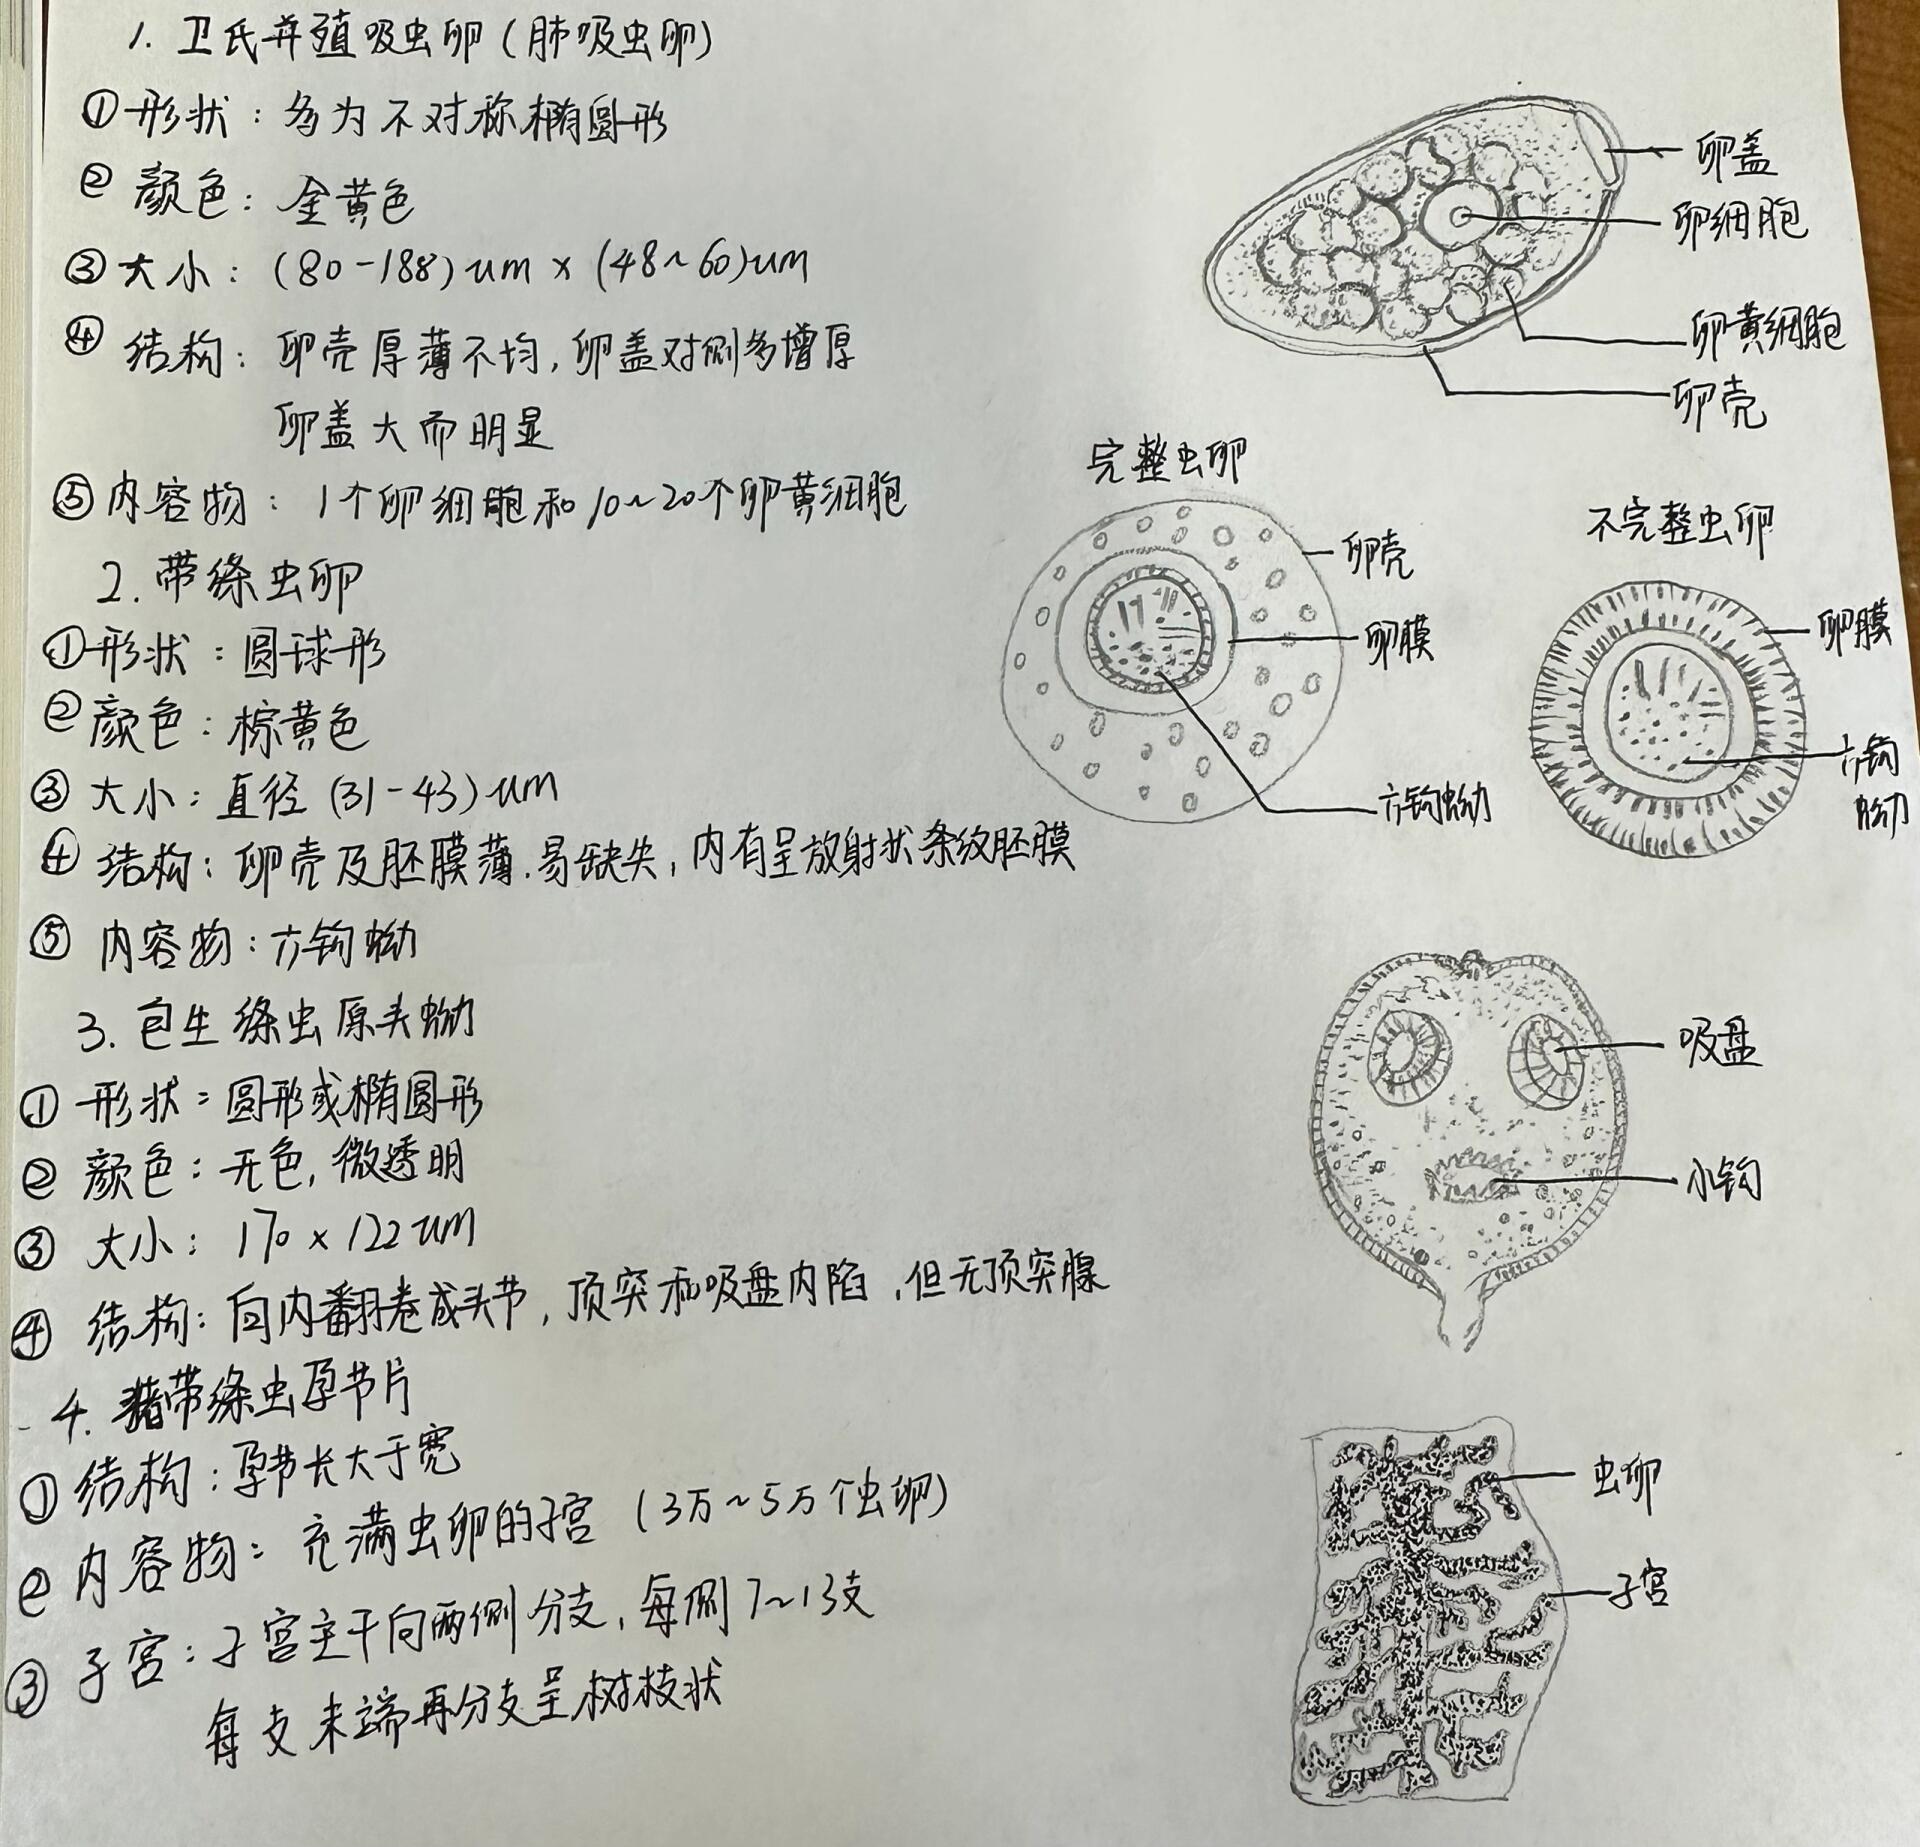 1. 卫氏并殖吸虫卵(肺吸虫卵)
①形状:多为不对称椭圆形
②颜色:金黄色
③大小:(80-188)um×(48~60)um
④结构:卵壳厚薄不均,卵盖对侧多增厚
卵盖大而明显
⑤内容物:1个卵细胞和10~20个卵黄细胞
卵盖
卵细胞
卵黄细胞
卵壳
2. 带绦虫卵
①形状:圆球形
②颜色:棕黄色
③大小:直径(31-43)um
④结构:卵壳及胚膜薄.易缺失,内有呈放射状条纹胚膜
⑤内容物:六钩蚴
完整虫卵
卵壳
卵膜
六钩蚴
不完整虫卵
卵膜
六钩
蚴
3. 包生绦虫原头蚴
①形状:圆形或椭圆形
②颜色:无色,微透明
③大小:170×122um
④结构:向内翻卷成头节,顶突和吸盘内陷,但无顶突腺
吸盘
小钩
4. 猪带绦虫孕节片
①结构:孕节长大于宽
②内容物:充满虫卵的子宫(3万~5万个虫卵)
③子宫:子宫主干向两侧分支,每侧7~13支
每支末端再分支呈树枝状
虫卵
子宫